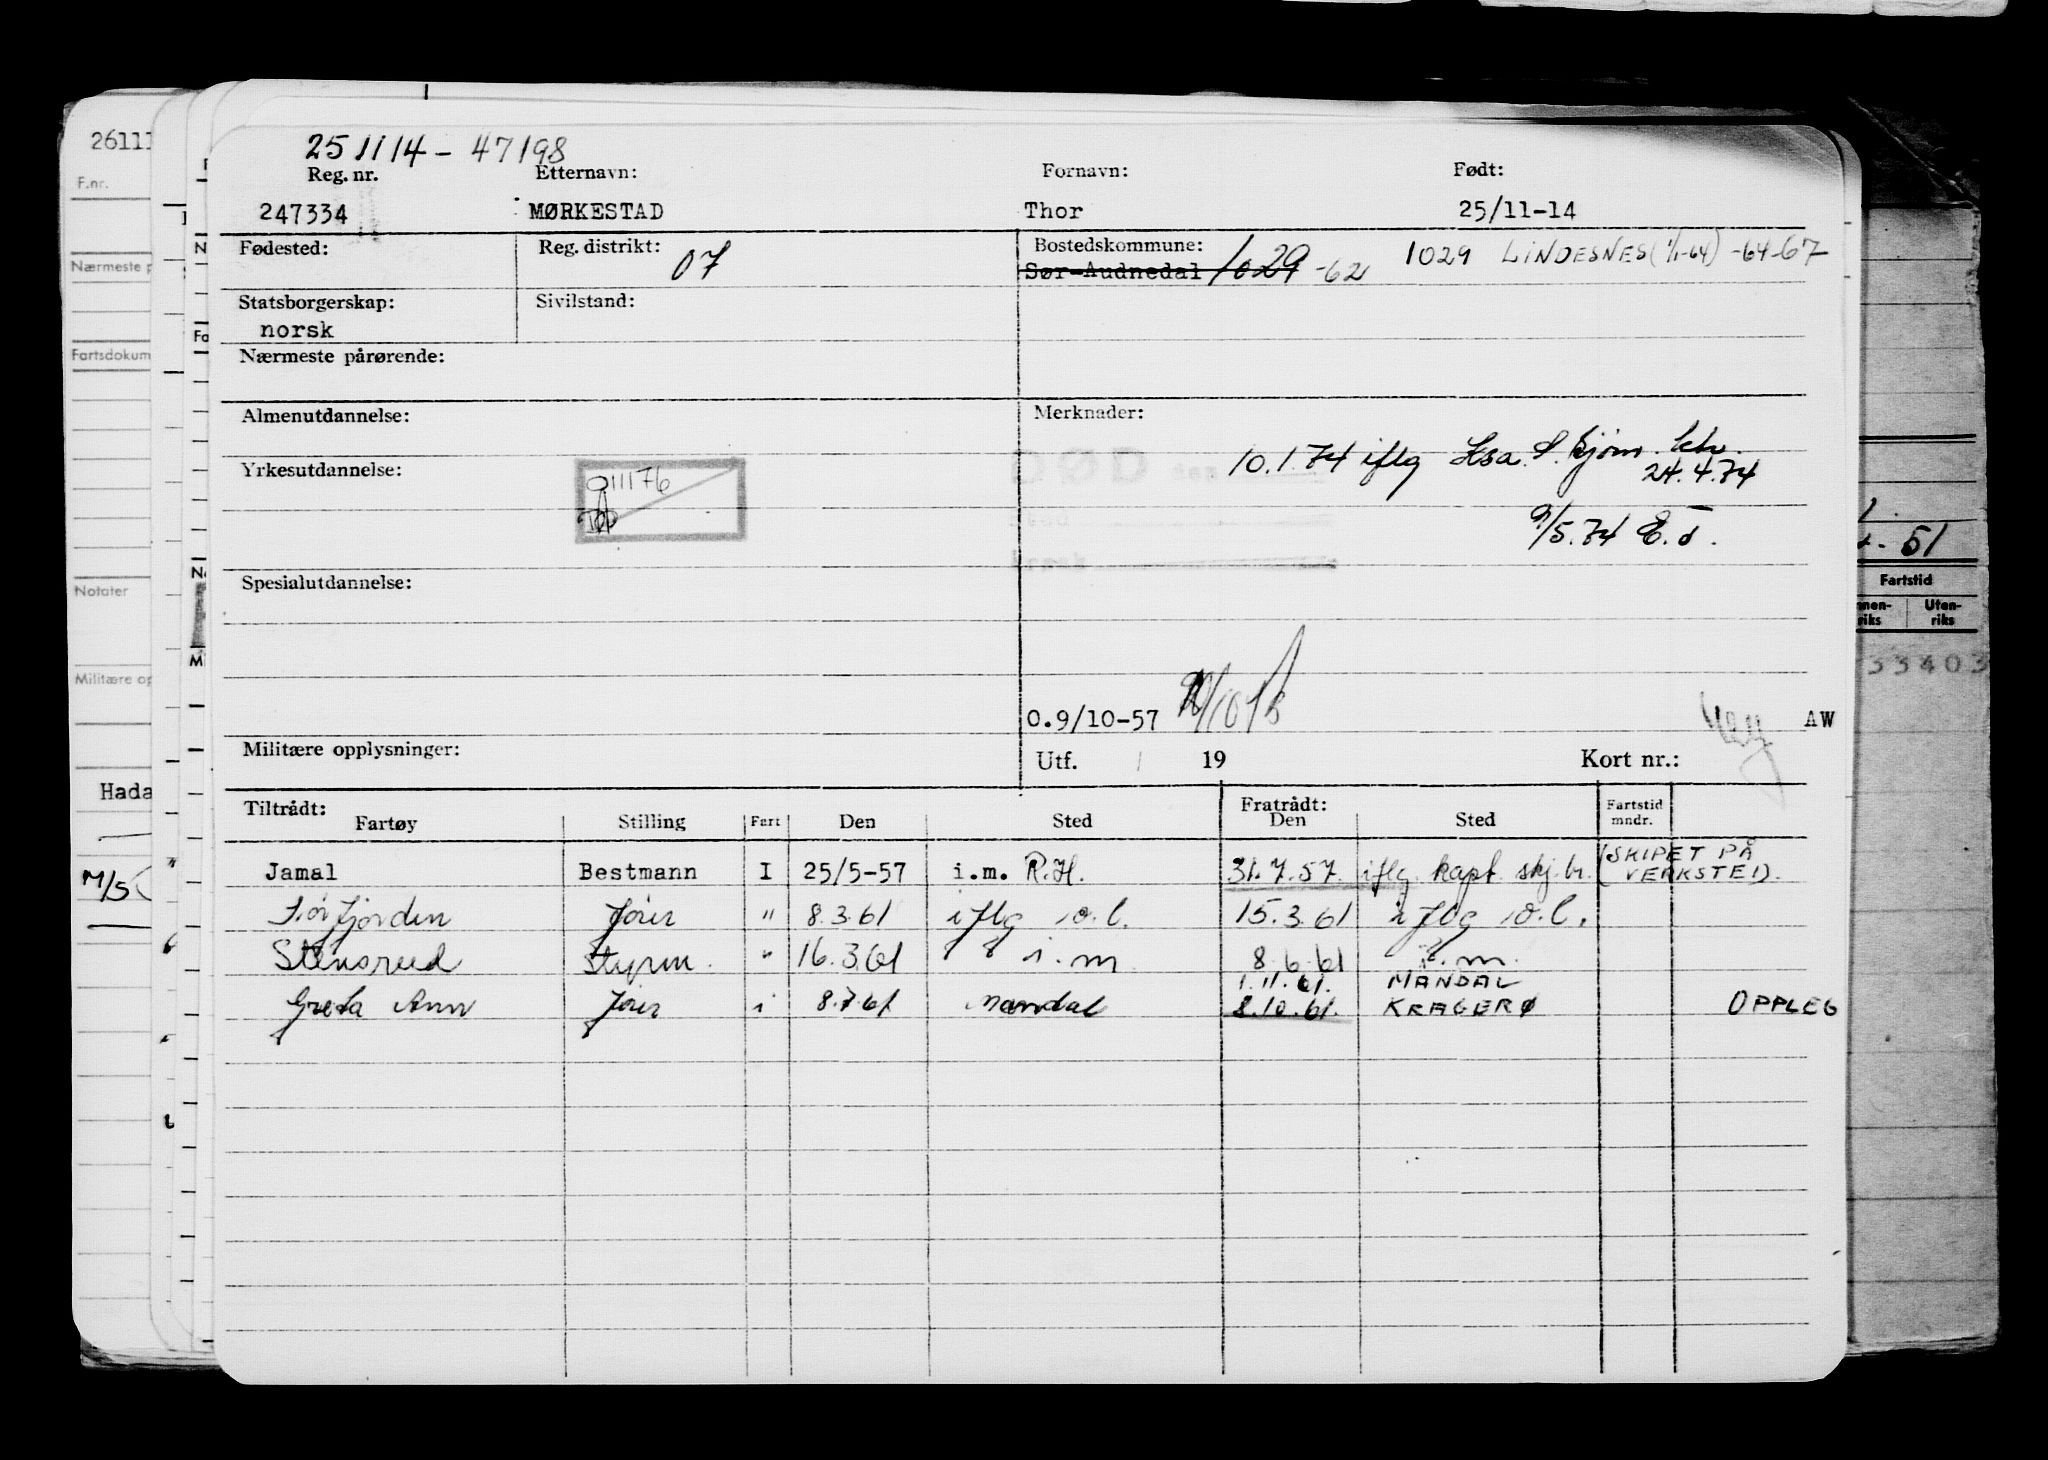 26111
F.nr.
Nærmeste p
Fartsdokum
Notater
Militære op
Hada
M/S
251114-47198
Reg. nr. Etternavn: Fornavn: Født:
247334 MØRKESTAD Thor 25/11-14
Fødested: Reg. distrikt: 07 Bostedskommune: 1029 LINDESNES (1/1-64) -64-67
Sør-Audnedal 1029 -62
Statsborgerskap: Sivilstand:
norsk
Nærmeste pårørende:
Almenutdannelse: Merknader:
DØD 10.1.74 iflg
24.4.74
Yrkesutdannelse: 011176
9/5.74 E.J.
Spesialutdannelse:
0.9/10-57 AW
Militære opplysninger: Utf. 19 Kort nr.:
Tiltrådt: Fratrådt:
Fartøy Stilling Fart Den Sted Den Sted Fartstid mndr.
Jamal Bestmann I 25/5-57 i.m. R.H. 31.7.57. iflg. kapt. skj.br. (SKIPET PÅ
VERKSTED).
Sørfjorden fører " 8.3.61 iflg o.l. 15.3.61 iflg o.l.
Stensrud Styrm. " 16.3.61 i.m 8.6.61 i.m.
1.11.61. MANDAL
Greta Ann fører i 8.7.61 Mandal 8.10.61. KRAGERØ OPPLEG
51
Fartstid
nnen-
riks
Uten-
riks
33403